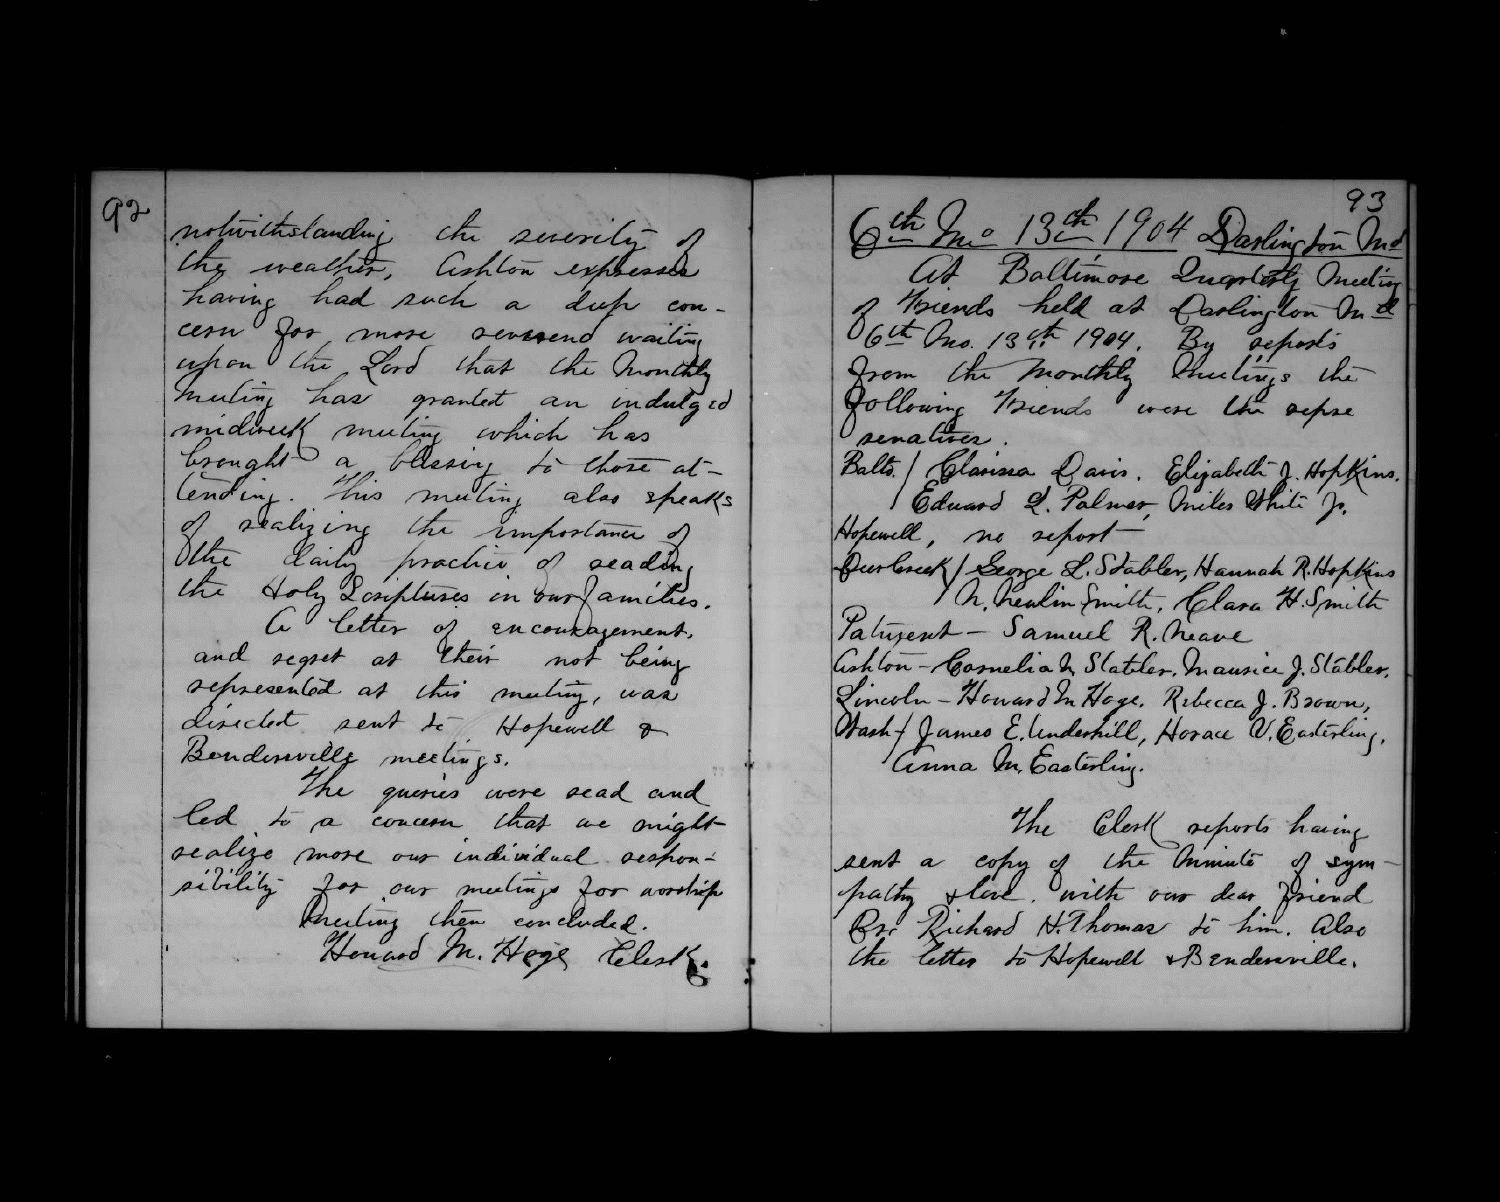 92
notwithstanding the severity of
the weather, Ashton expresses
having had such a deep con-
cern for more reverend waiting
upon the Lord that the Monthly
Meeting has granted an indulged
midweek meeting which has
brought a blessing to those at-
tending. This meeting also speaks
of realizing the importance of
the daily practice of reading
the Holy Scriptures in our families.
A letter of encouragement,
and regret at their not being
represented at this meeting, was
directed sent to Hopewell &
Bendersville meetings.
The queries were read and
led to a concern that we might
realize more our individual respon-
sibility for our meetings for worship
Meeting then concluded.
Howard M. Hoge Clerk.
93
6th Mo 13th 1904 Darlington Md
At Baltimore Quarterly Meeting
of Friends held at Darlington Md
6th Mo. 13th 1904. By reports
from the Monthly Meetings the
following Friends were the repre
senatives.
Balto. / Clarissa Davis. Elizabeth J. Hopkins.
Edward L. Palmer, Miles White Jr.
Hopewell, no report
Deer Creek / George L. Stabler, Hannah R. Hopkins
N. Newlin Smith, Clara H. Smith
Patuxent - Samuel R. Neave
Ashton - Cornelia N. Stabler, Maurice J. Stabler.
Lincoln - Howard M Hoge. Rebecca J. Brown,
Wash / James E. Underhill, Horace V. Easterling,
Anna M. Easterling.
The Clerk reports having
sent a copy of the Minute of sym-
pathy & love with our dear friend
Dr. Richard H. Thomas to him. Also
the letter to Hopewell & Bendersville.